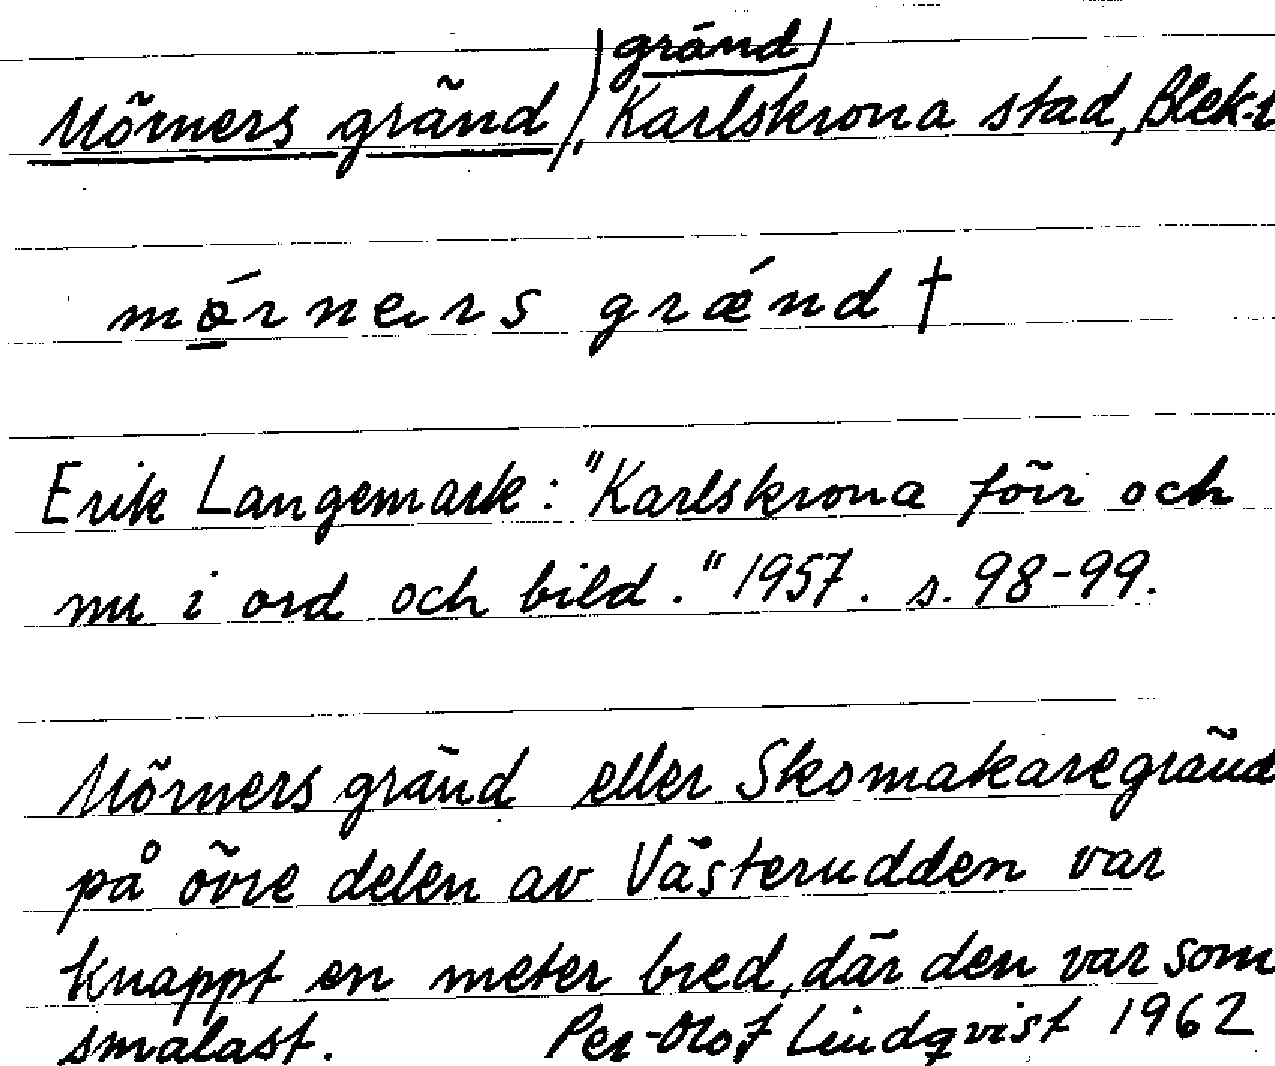 gränd
Mörners gränd, Karlskrona stad, Blek-
mǿrners grǽnd †
Erik Langemark: "Karlskrona förr och
nu i ord och bild." 1957. s. 98-99.
Mörners gränd eller Skomakaregränd
på övre delen av Västerudden var
knappt en meter bred, där den var som
smalast. Per-Olof Lindqvist 1962